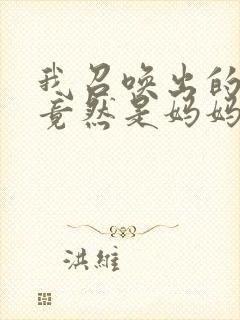 我召唤出的
竟然是妈妈
洪维